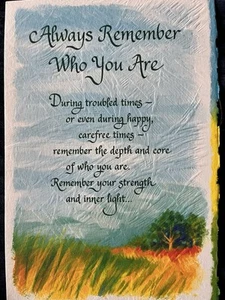 Always Remember
Who You Are
During troubled times —
or even during happy,
carefree times —
remember the depth and core
of who you are.
Remember your strength
and inner light...